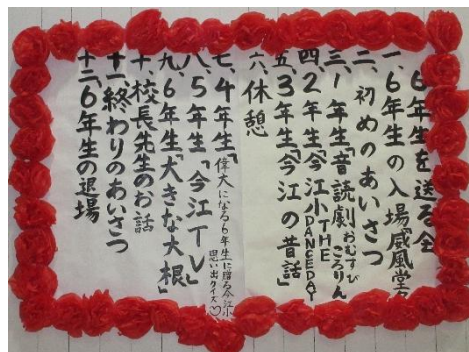 6年生を送る会
一、6年生の入場「威風堂
二、初めのあいさつ
三、1年生「音読劇おむすびころりん
四、2年生「今江小THE DANCEDAY
五、3年生「今江の昔話」
六、休憩
七、4年生「偉大になる6年生に贈る今江小思い出クイズ♡
八、5年生「今江TV」
九、6年生「大きな大根」
十、校長先生のお話
十一終わりのあいさつ
十二6年生の退場